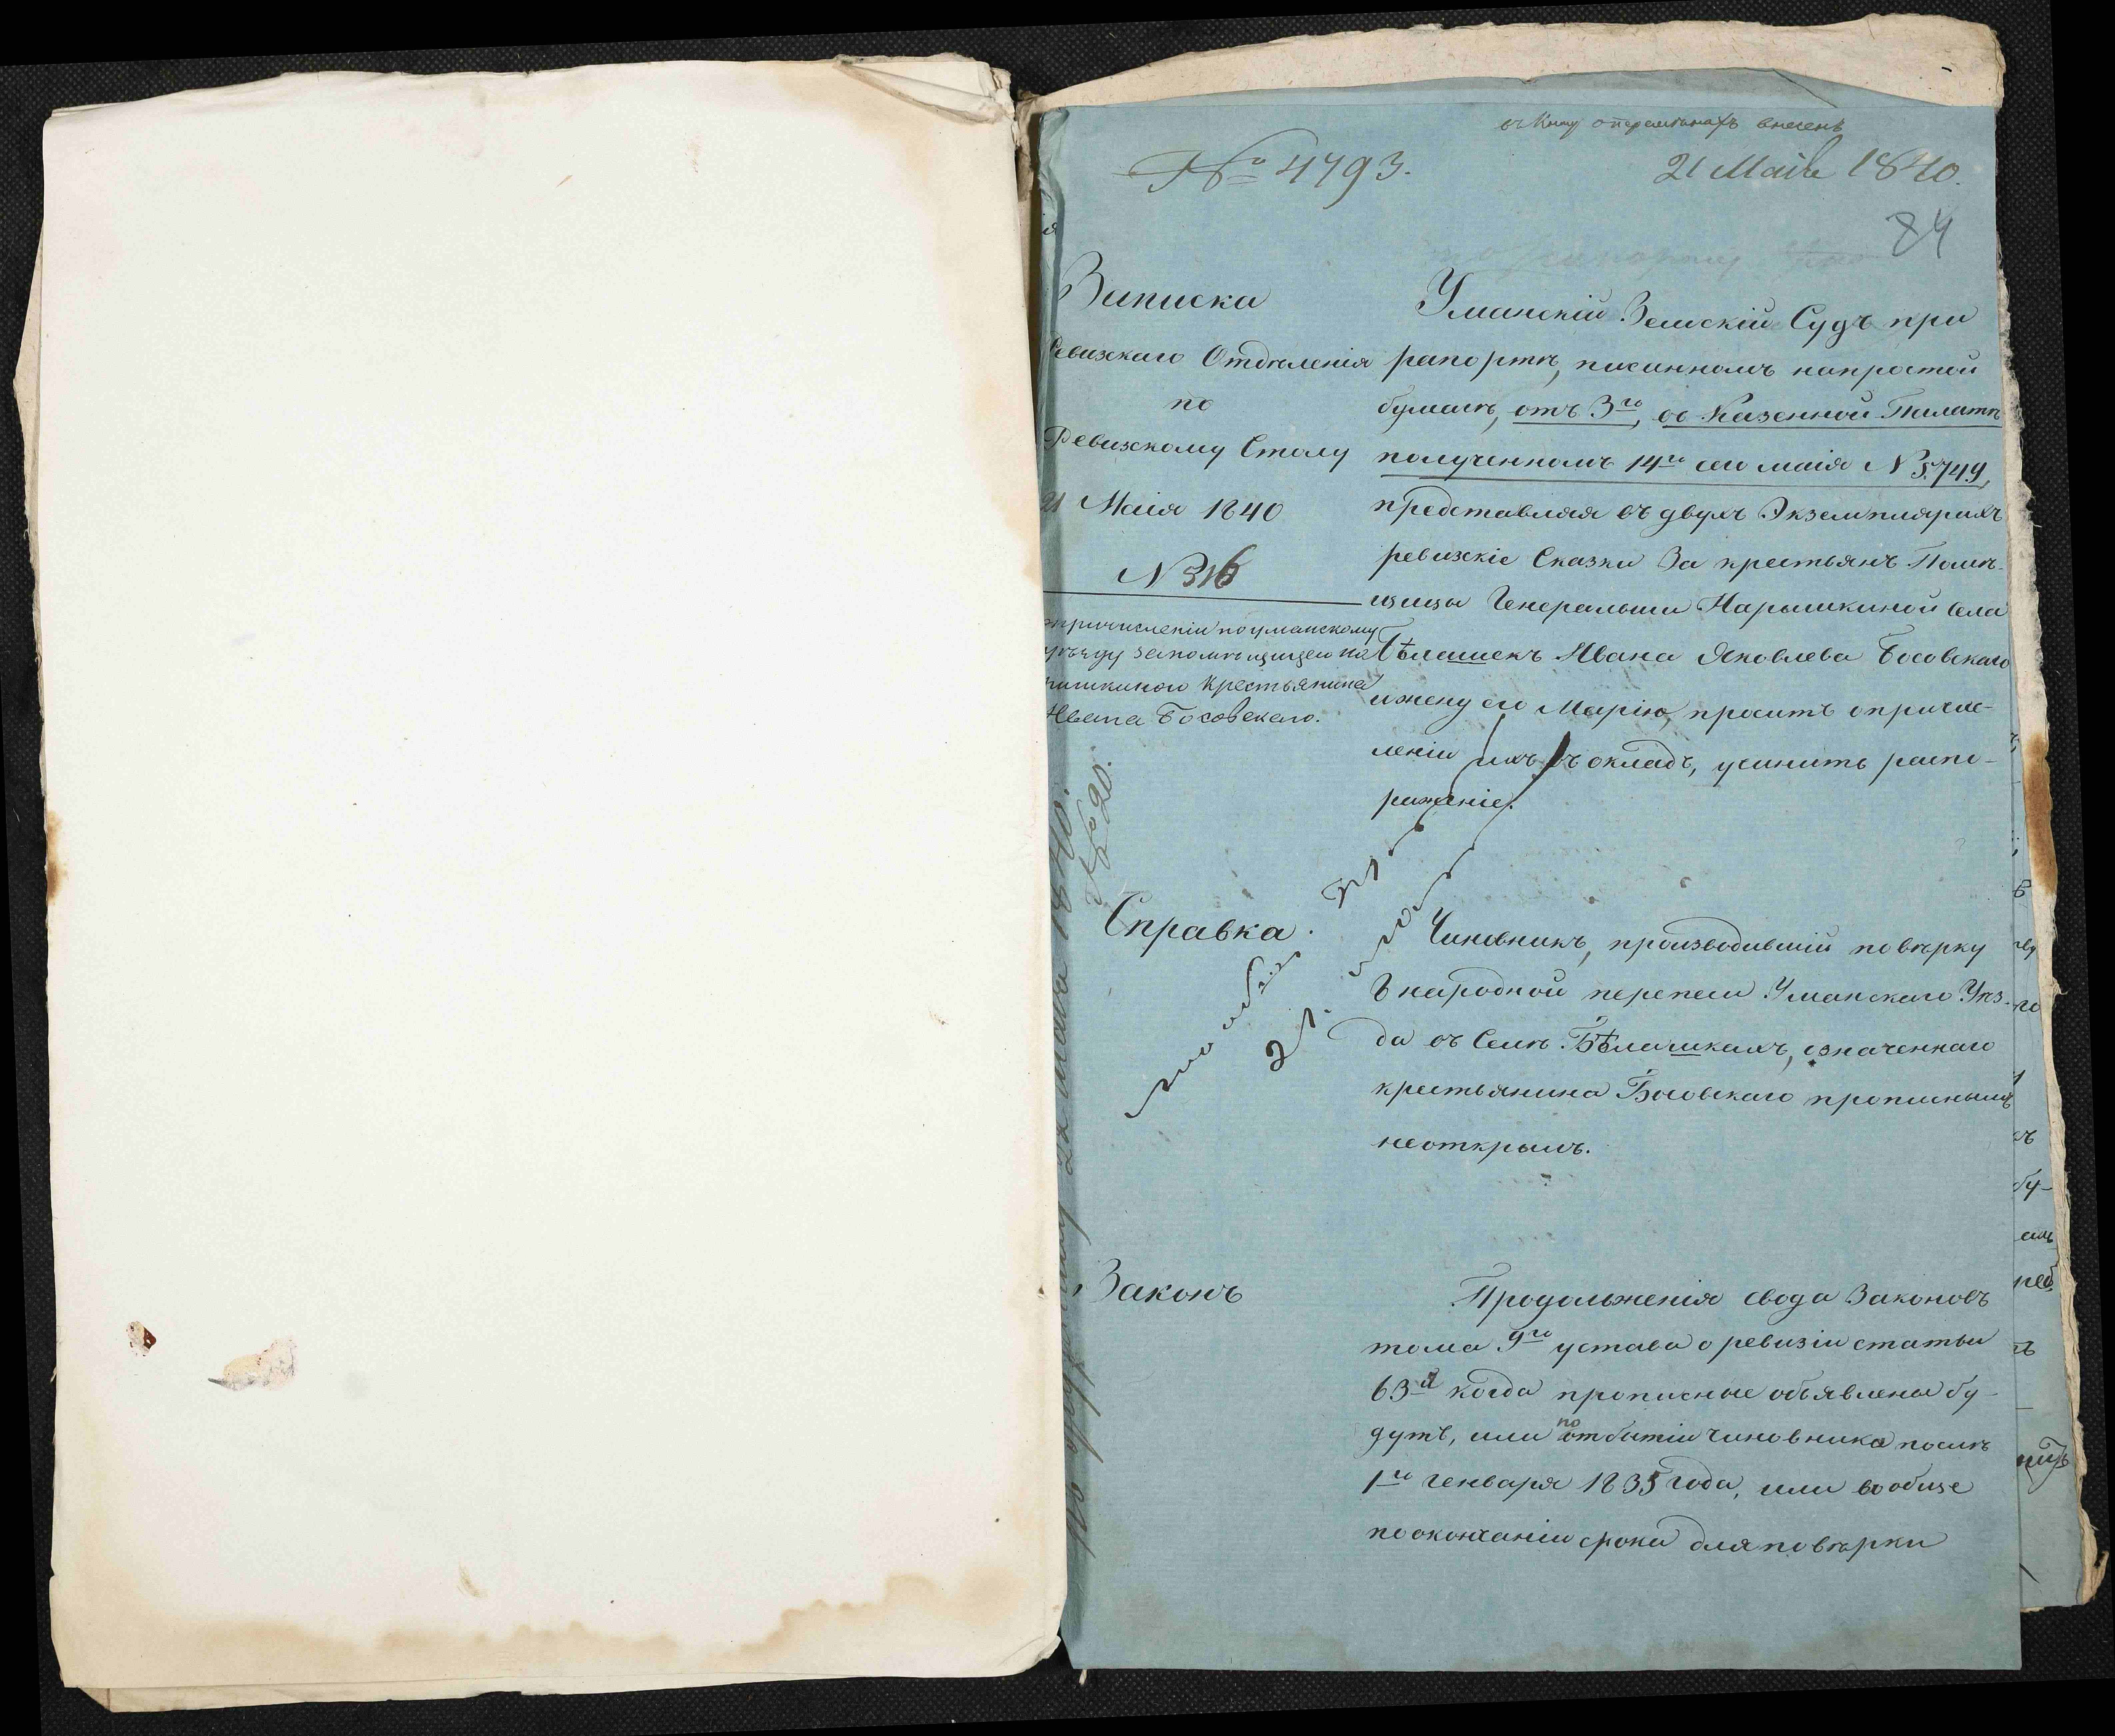 въ Книгу о перемѣнахъ внесенъ
№ 4793.
21 Маія 1840.
84
Записка
Ревизкаго Отдѣленія
по
Ревизскому Столу
21 Маія 1840
№ 316
о причисленіи по уманскому
уѣзду за помѣщицею На
рышкиною крестьянина
Ивана Босовскаго.
№ 20.
Уманскій Земскій Судъ при
рапортѣ, писанномъ на простой
бумагѣ, отъ 3го, въ Казенной Палатѣ
полученномъ 14го сего маія № 5.749,
представляя въ двухъ Экземплярахъ
ревизскіе Сказки За крестьянъ Помѣ-
щицы Генеральши Нарышкиной села
Бѣлашекъ Ивана Яковлева Босовскаго
и жену его Марію, проситъ о причис-
леніи ихъ въ окладъ, учинить распо-
ряженіе.
Справка.
Чиновникъ, производившій повѣрку
8 народной переписи Уманскаго Уѣз-
да въ Селѣ Бѣлашкахъ, означеннаго
крестьянина Босовскаго прописнымъ
не открылъ.
Законъ
Продолженія свода Законовъ
тома 9го устава о ревизіи статьи
63й когда прописные объявлены бу-
дутъ, или по отбытіи чиновника послѣ
1го Генваря 1835 года, или вообще
по окончаніи срока для повѣрки